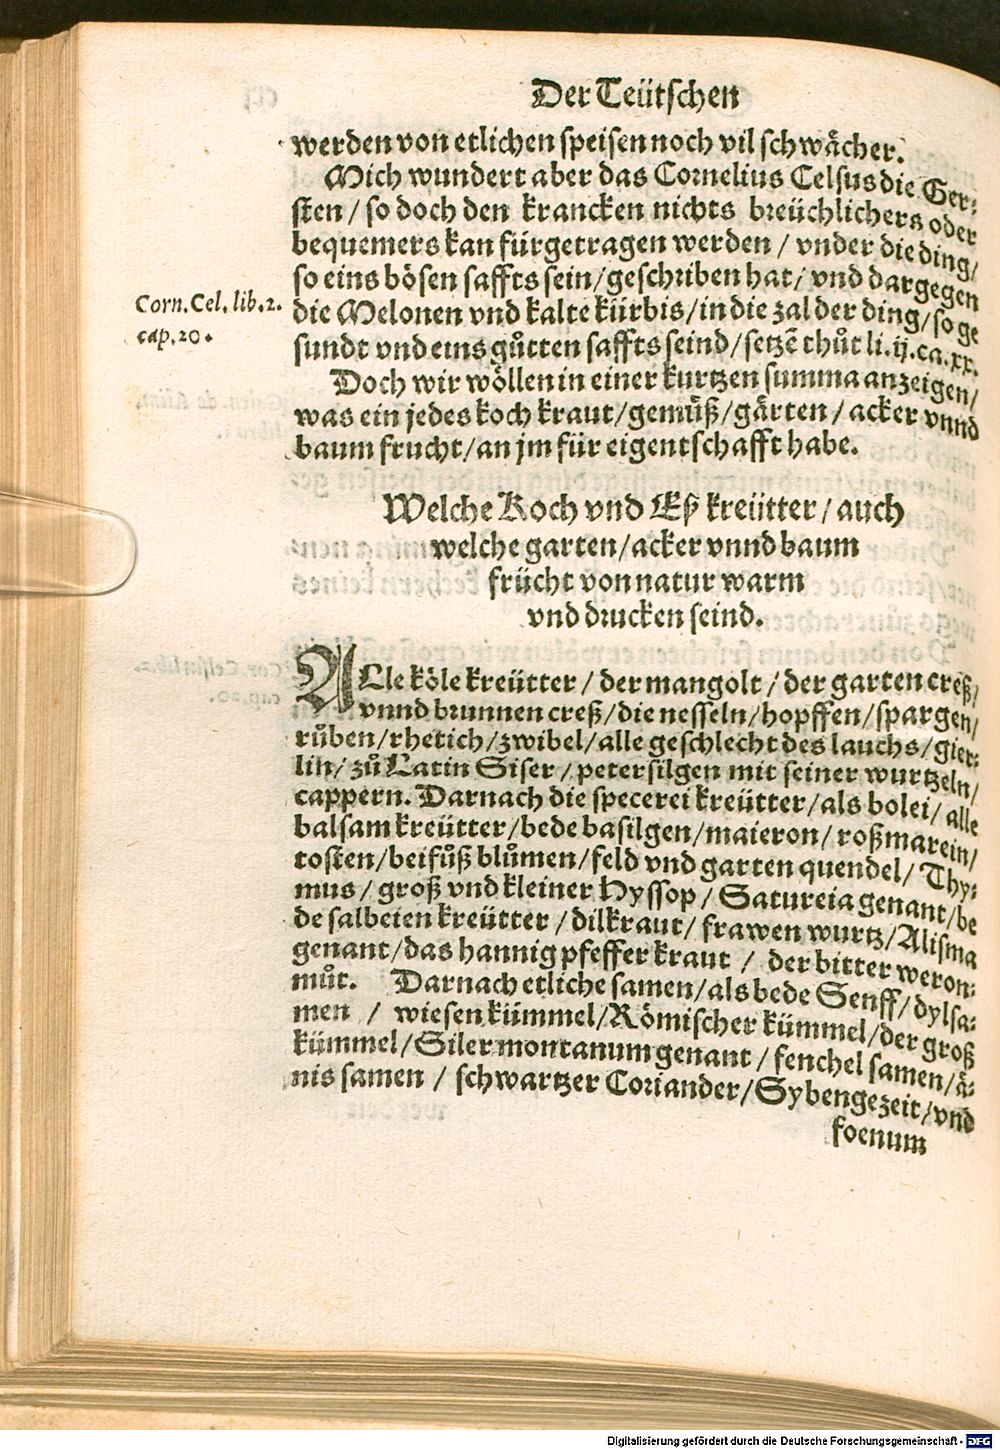 Der Teütschen
werden von etlichen speisen noch vil schwächer.
Mich wundert aber das Cornelius Celsus die Ger⸗
sten / so doch den krancken nichts breüchlichers oder
bequemers kan fürgetragen werden / vnder die ding/
so eins bösen saffts sein/geschriben hat/ vnd dargegen
Corn. Cel. lib. 2.
cap. 20.
die Melonen vnd kalte kürbis/in die zal der ding/so ge
sundt vnd eins gůtten saffts seind/setzē thůt li. ij. ca. xx.
Doch wir wöllen in einer kurtzen summa anzeigen/
was ein jedes koch kraut/gemüß/gärten / acker vnnd
baum frucht/an jm für eigentschafft habe.
Welche Koch vnd Eß kreütter / auch
welche garten/acker vnnd baum
frücht von natur warm
vnd drucken seind.
ALle köle kreütter / der mangolt / der garten creß,
vnnd brunnen creß/die nesseln/hopffen/spargen/
růben/rhetich/zwibel/alle geschlecht des lauchs/gier⸗
lin/ zů Latin Siser / petersilgen mit seiner wurtzeln/
cappern. Darnach die specerei kreütter/als bolei/ alle
balsam kreütter/bede basilgen/maieron/ roßmarein/
tosten/beifůß blůmen/feld vnd garten quendel/ Thy⸗
mus / groß vnd kleiner Hyssop / Satureia genant/be
de salbeien kreütter / dilkraut/ frawen wurtz/Alisma
genant/das hannig pfeffer kraut / der bitter weron⸗
můt. Darnach etliche samen/als bede Senff/dylsa⸗
men / wiesen kümmel/Römischer kümmel/der groß
kümmel/Siler montanum genant / fenchel samen/ä⸗
nis samen / schwartzer Coriander/Sybengezeit/vnd
foenum
Digitalisierung gefördert durch die Deutsche Forschungsgemeinschaft - DFG